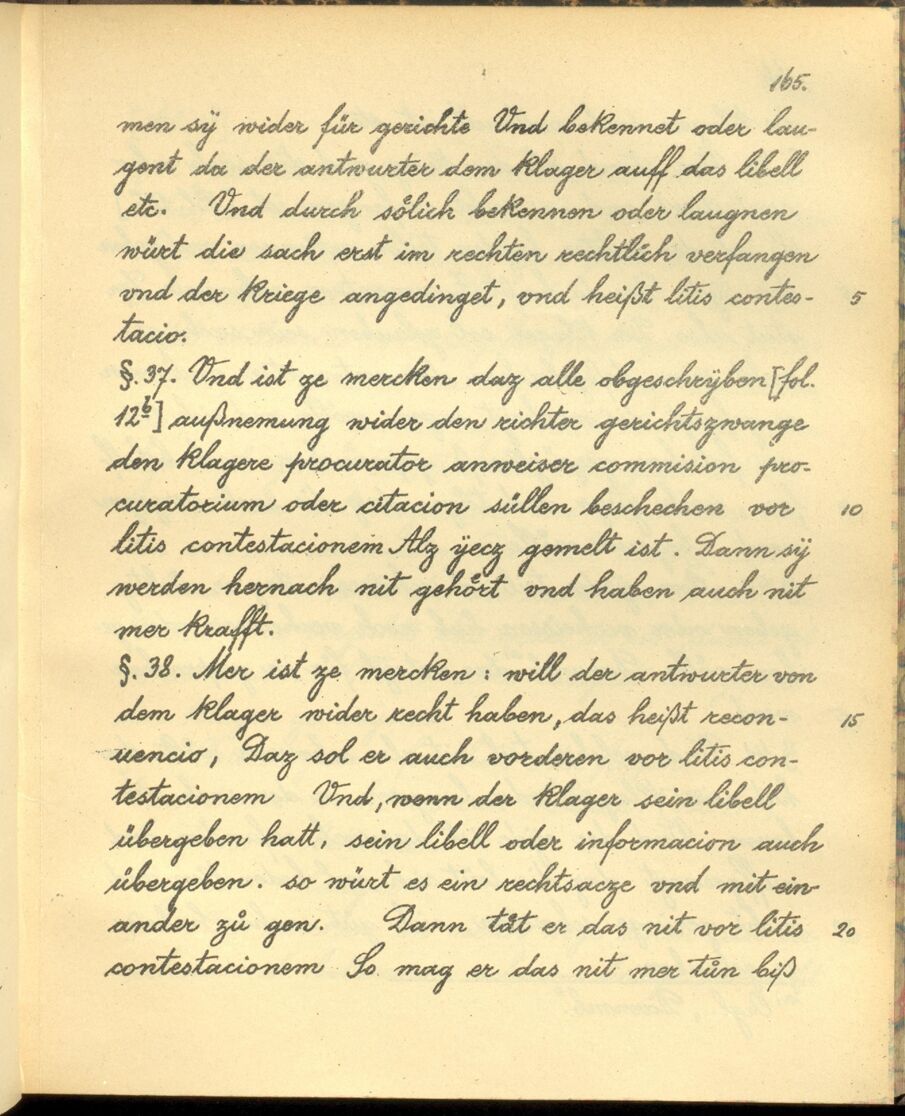 165.
men sÿ wider für gerichte Vnd bekennet oder lau-
gent da der antwurter dem klager auff das libell
etc. Vnd durch sölich bekennen oder laugnen
würt die sach erst im rechten rechtlich verfangen
vnd der kriege angedinget, vnd heißt litis contes- 5
tacio.
§. 37. Vnd ist ze mercken daz alle obgeschrÿben [fol.
12b] außnemung wider den richter gerichtszwange
den klagere procurator anweiser commision pro-
curatorium oder citacion süllen beschechen vor 10
litis contestacionem Alz ÿecz gemelt ist. Dann sÿ
werden hernach nit gehört vnd haben auch nit
mer krafft.
§. 38. Mer ist ze mercken: will der antwurter von
dem klager wider recht haben, das heißt recon- 15
uencio, Daz sol er auch vorderen vor litis con-
testacionem Vnd, wenn der klager sein libell
übergeben hatt, sein libell oder informacion auch
übergeben. so würt es ein rechtsacze vnd mit ein-
ander zů gen. Dann tåt er das nit vor litis 20
contestacionem So mag er das nit mer tůn biß